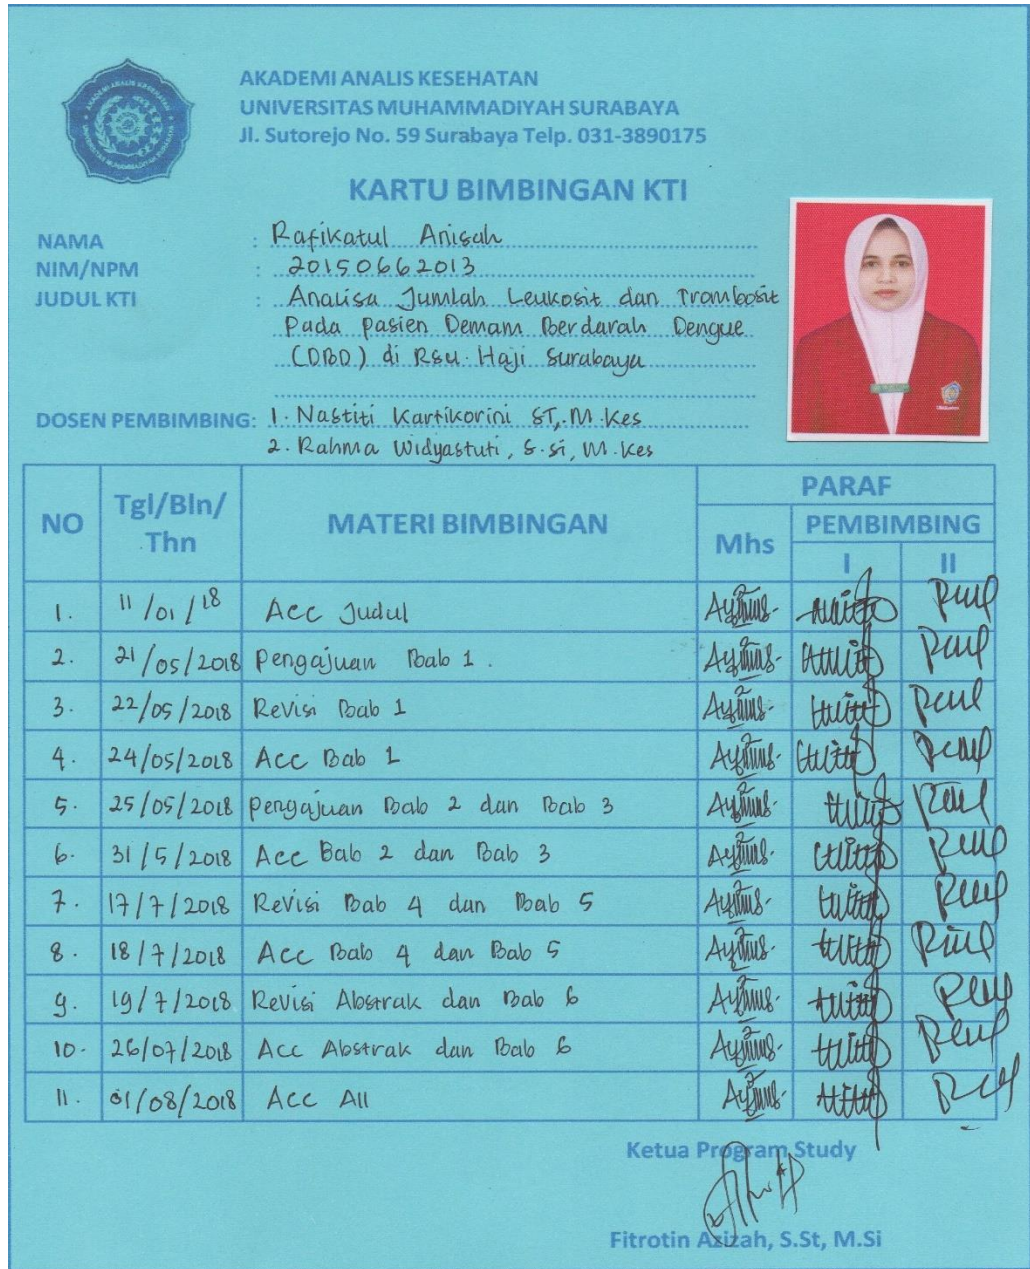 AKADEMI ANALIS KESEHATAN
UNIVERSITAS MUHAMMADIYAH SURABAYA
Jl. Sutorejo No. 59 Surabaya Telp. 031-3890175
KARTU BIMBINGAN KTI
NAMA : Rafikatul Anisah
NIM/NPM : 20150662013
JUDUL KTI : Analisa Jumlah Leukosit dan Trombosit
Pada pasien Demam Berdarah Dengue
(DBD) di Rsu. Haji Surabaya
DOSEN PEMBIMBING: 1. Nastiti Kartikorini ST, M.Kes
2. Rahma Widyastuti, S.si, M.Kes
NO Tgl/Bln/Thn MATERI BIMBINGAN PARAF
Mhs PEMBIMBING
I II
1. 11/01/18 Acc Judul
2. 21/05/2018 Pengajuan Bab 1.
3. 22/05/2018 Revisi Bab 1
4. 24/05/2018 Acc Bab 1
5. 25/05/2018 pengajuan Bab 2 dan Bab 3
6. 31/5/2018 Acc Bab 2 dan Bab 3
7. 17/7/2018 Revisi Bab 4 dan Bab 5
8. 18/7/2018 Acc Bab 4 dan Bab 5
9. 19/7/2018 Revisi Abstrak dan Bab 6
10. 26/07/2018 Acc Abstrak dan Bab 6
11. 01/08/2018 Acc All
Ketua Program Study
Fitrotin Azizah, S.St, M.Si